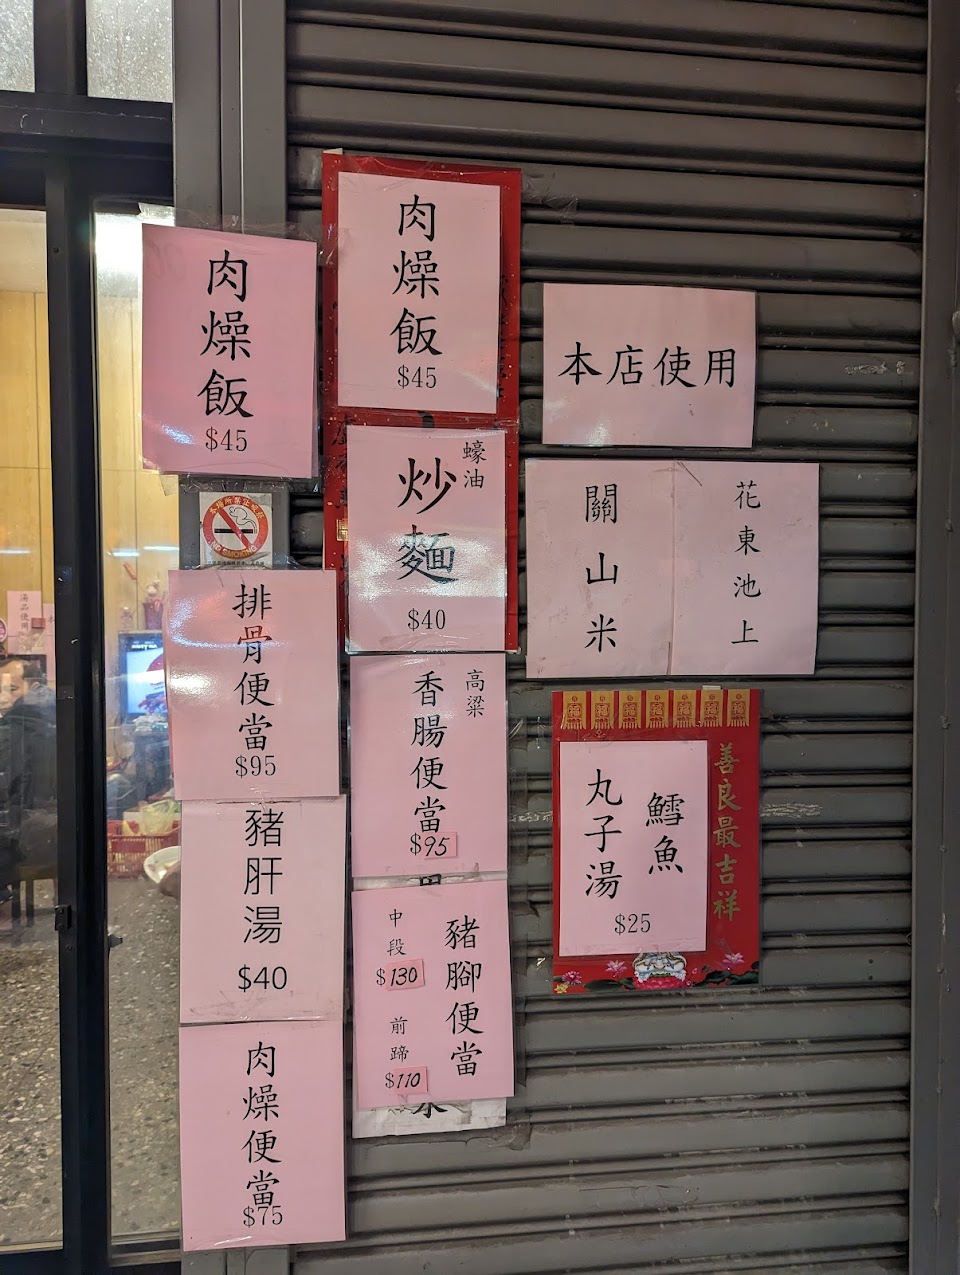 肉燥飯
$45
肉燥飯
$45
本店使用
蠔油
炒麵
$40
花東池上
關山米
NO SMOKING
排骨便當
$95
高粱
香腸便當
$95
善良最吉祥
鱈魚
丸子湯
$25
豬肝湯
$40
豬腳便當
中段
$130
前蹄
$110
肉燥便當
$75